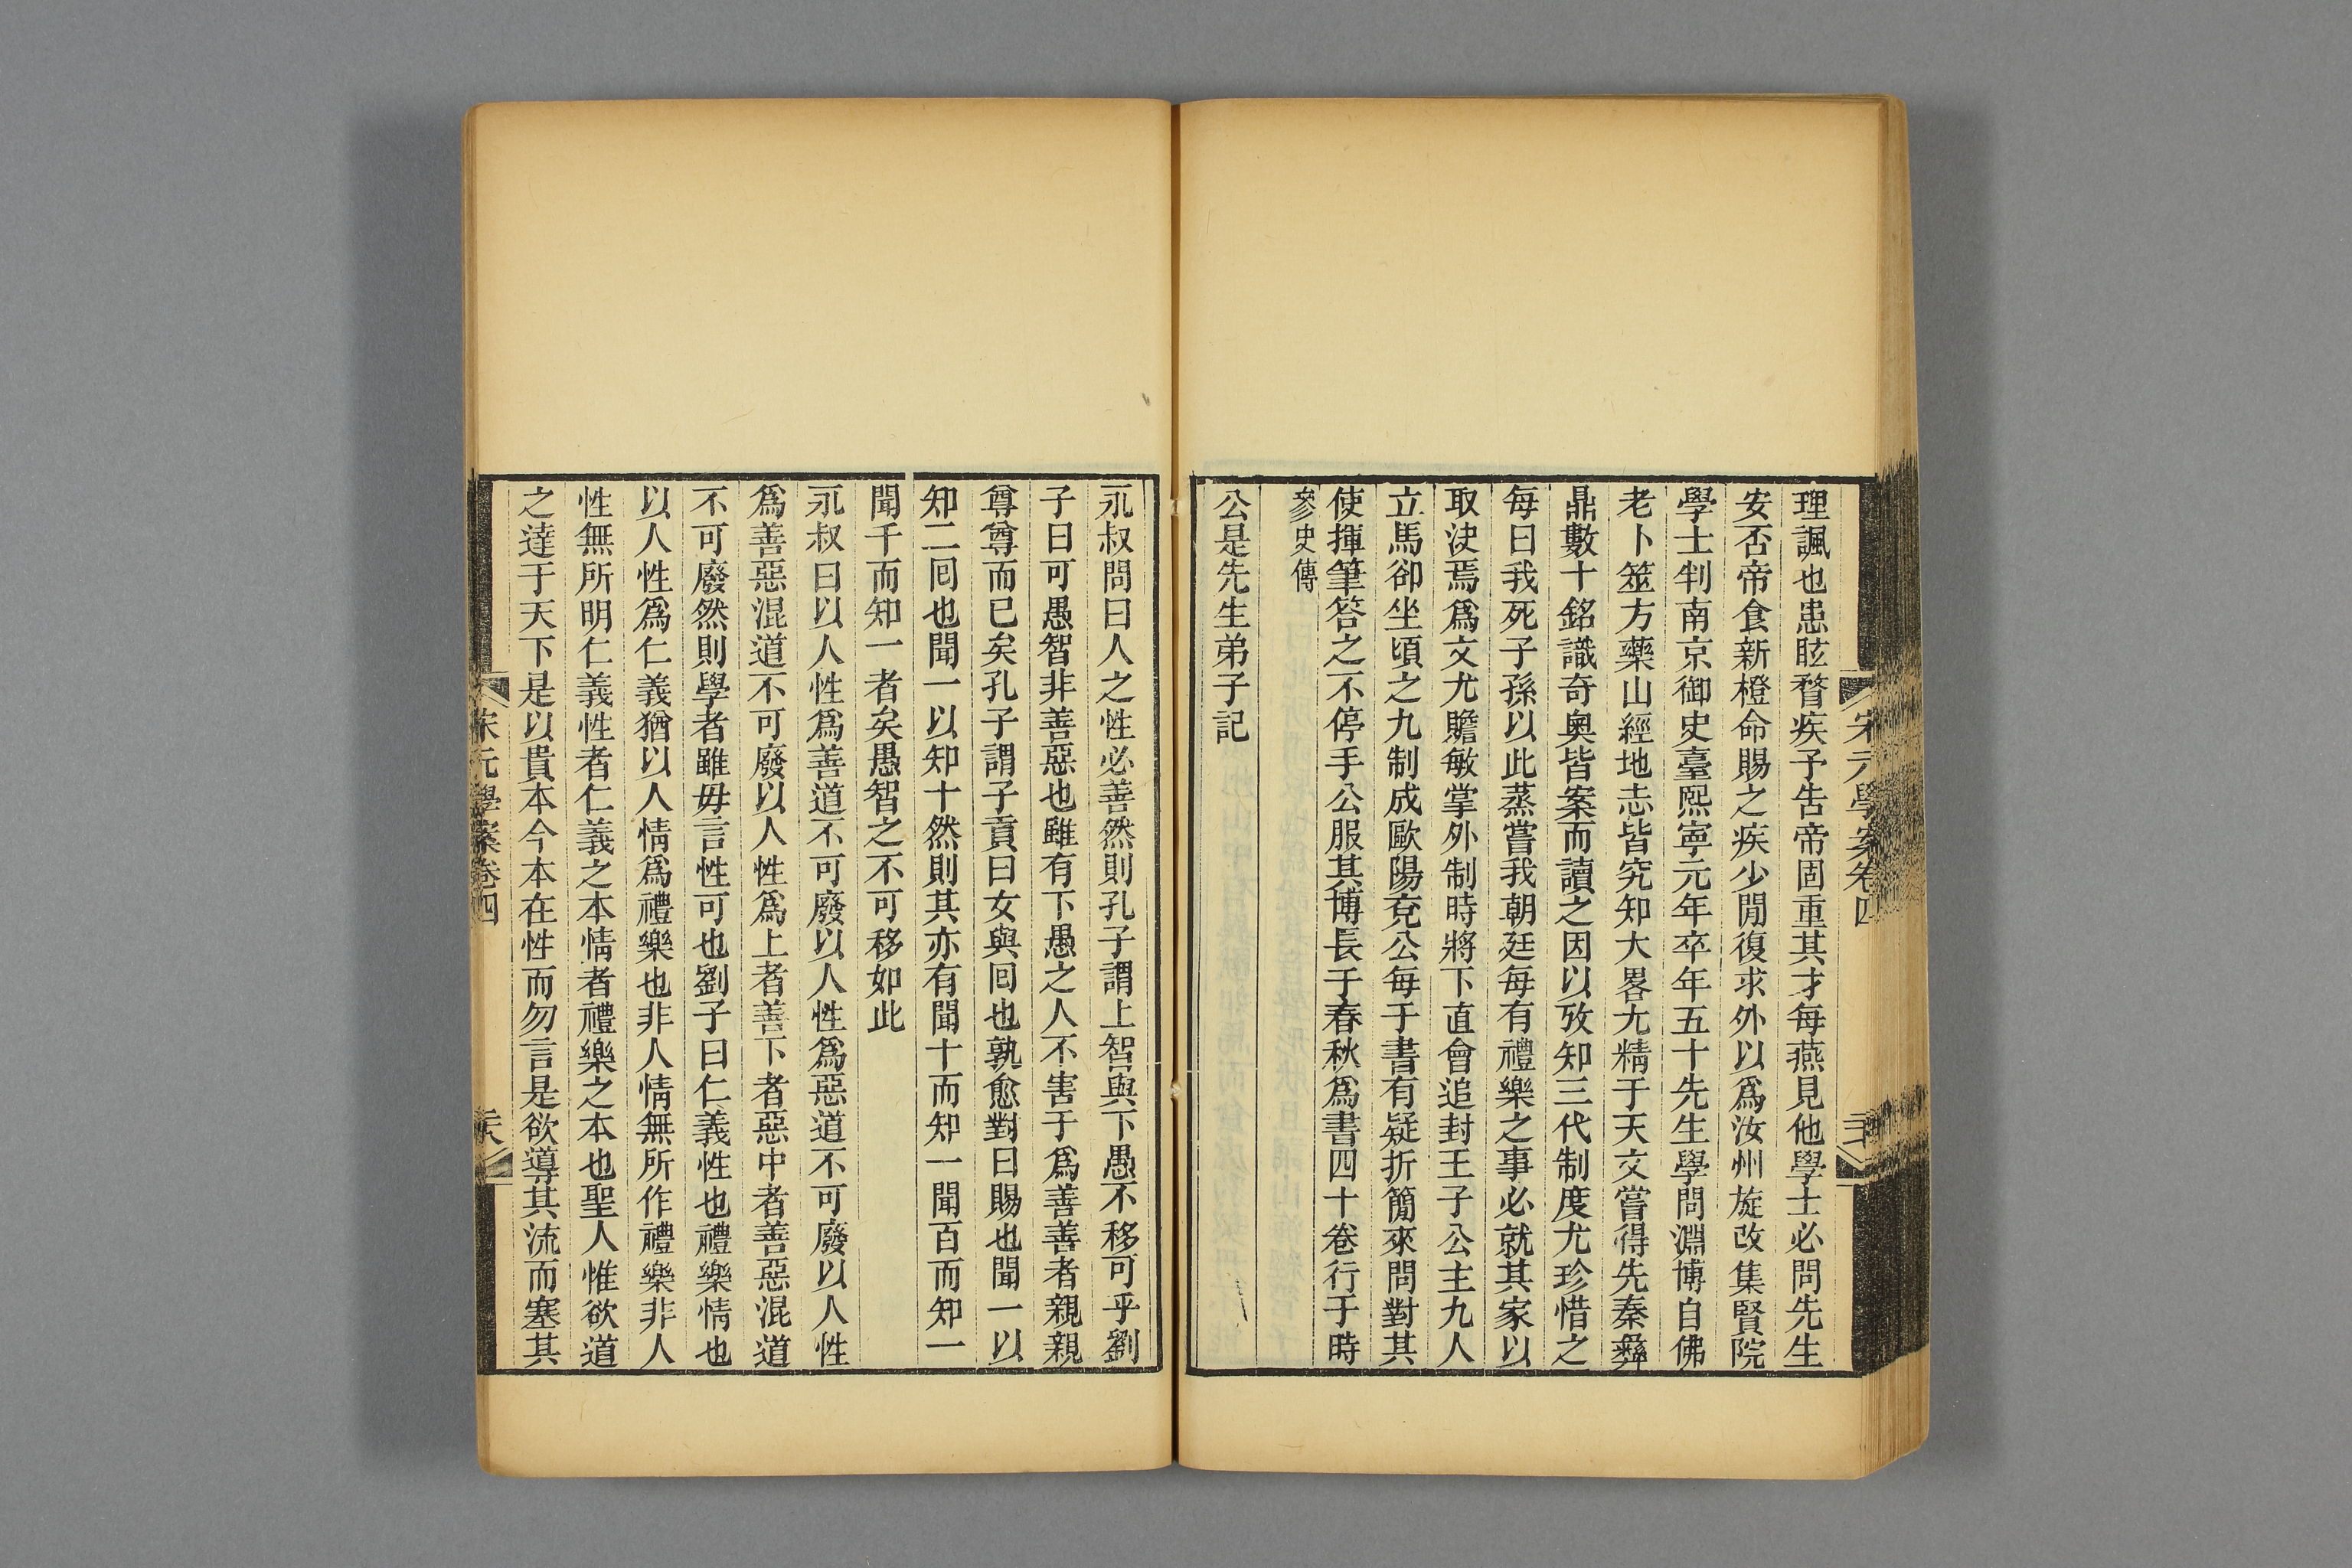 宋元學案卷四
理諷也患眩瞀疾予告帝固重其才每燕見他學士必問先生
安否帝食新橙命賜之疾少閒復求外以爲汝州旋改集賢院
學士判南京御史臺熙寧元年卒年五十先生學問淵博自佛
老卜筮方藥山經地志皆究知大畧尤精于天文嘗得先秦彝
鼎數十銘識奇奥皆案而讀之因以攷知三代制度尤珍惜之
每曰我死子孫以此蒸嘗我朝廷每有禮樂之事必就其家以
取決焉爲文尤贍敏掌外制時將下直會追封王子公主九人
立馬卻坐頃之九制成歐陽兗公每于書有疑折簡來問對其
使揮筆答之不停手公服其博長于春秋爲書四十卷行于時
參史傳
公是先生弟子記
永叔問曰人之性必善然則孔子謂上智與下愚不移可乎劉
子曰可愚智非善惡也雖有下愚之人不害于爲善善者親親
尊尊而已矣孔子謂子貢曰女與囘也孰愈對曰賜也聞一以
知二囘也聞一以知十然則其亦有聞十而知一聞百而知一
聞千而知一者矣愚智之不可移如此
永叔曰以人性爲善道不可廢以人性爲惡道不可廢以人性
爲善惡混道不可廢以人性爲上者善下者惡中者善惡混道
不可廢然則學者雖毋言性可也劉子曰仁義性也禮樂情也
以人性爲仁義猶以人情爲禮樂也非人情無所作禮樂非人
性無所明仁義性者仁義之本情者禮樂之本也聖人惟欲道
之達于天下是以貴本今本在性而勿言是欲導其流而塞其
宋元學案卷四